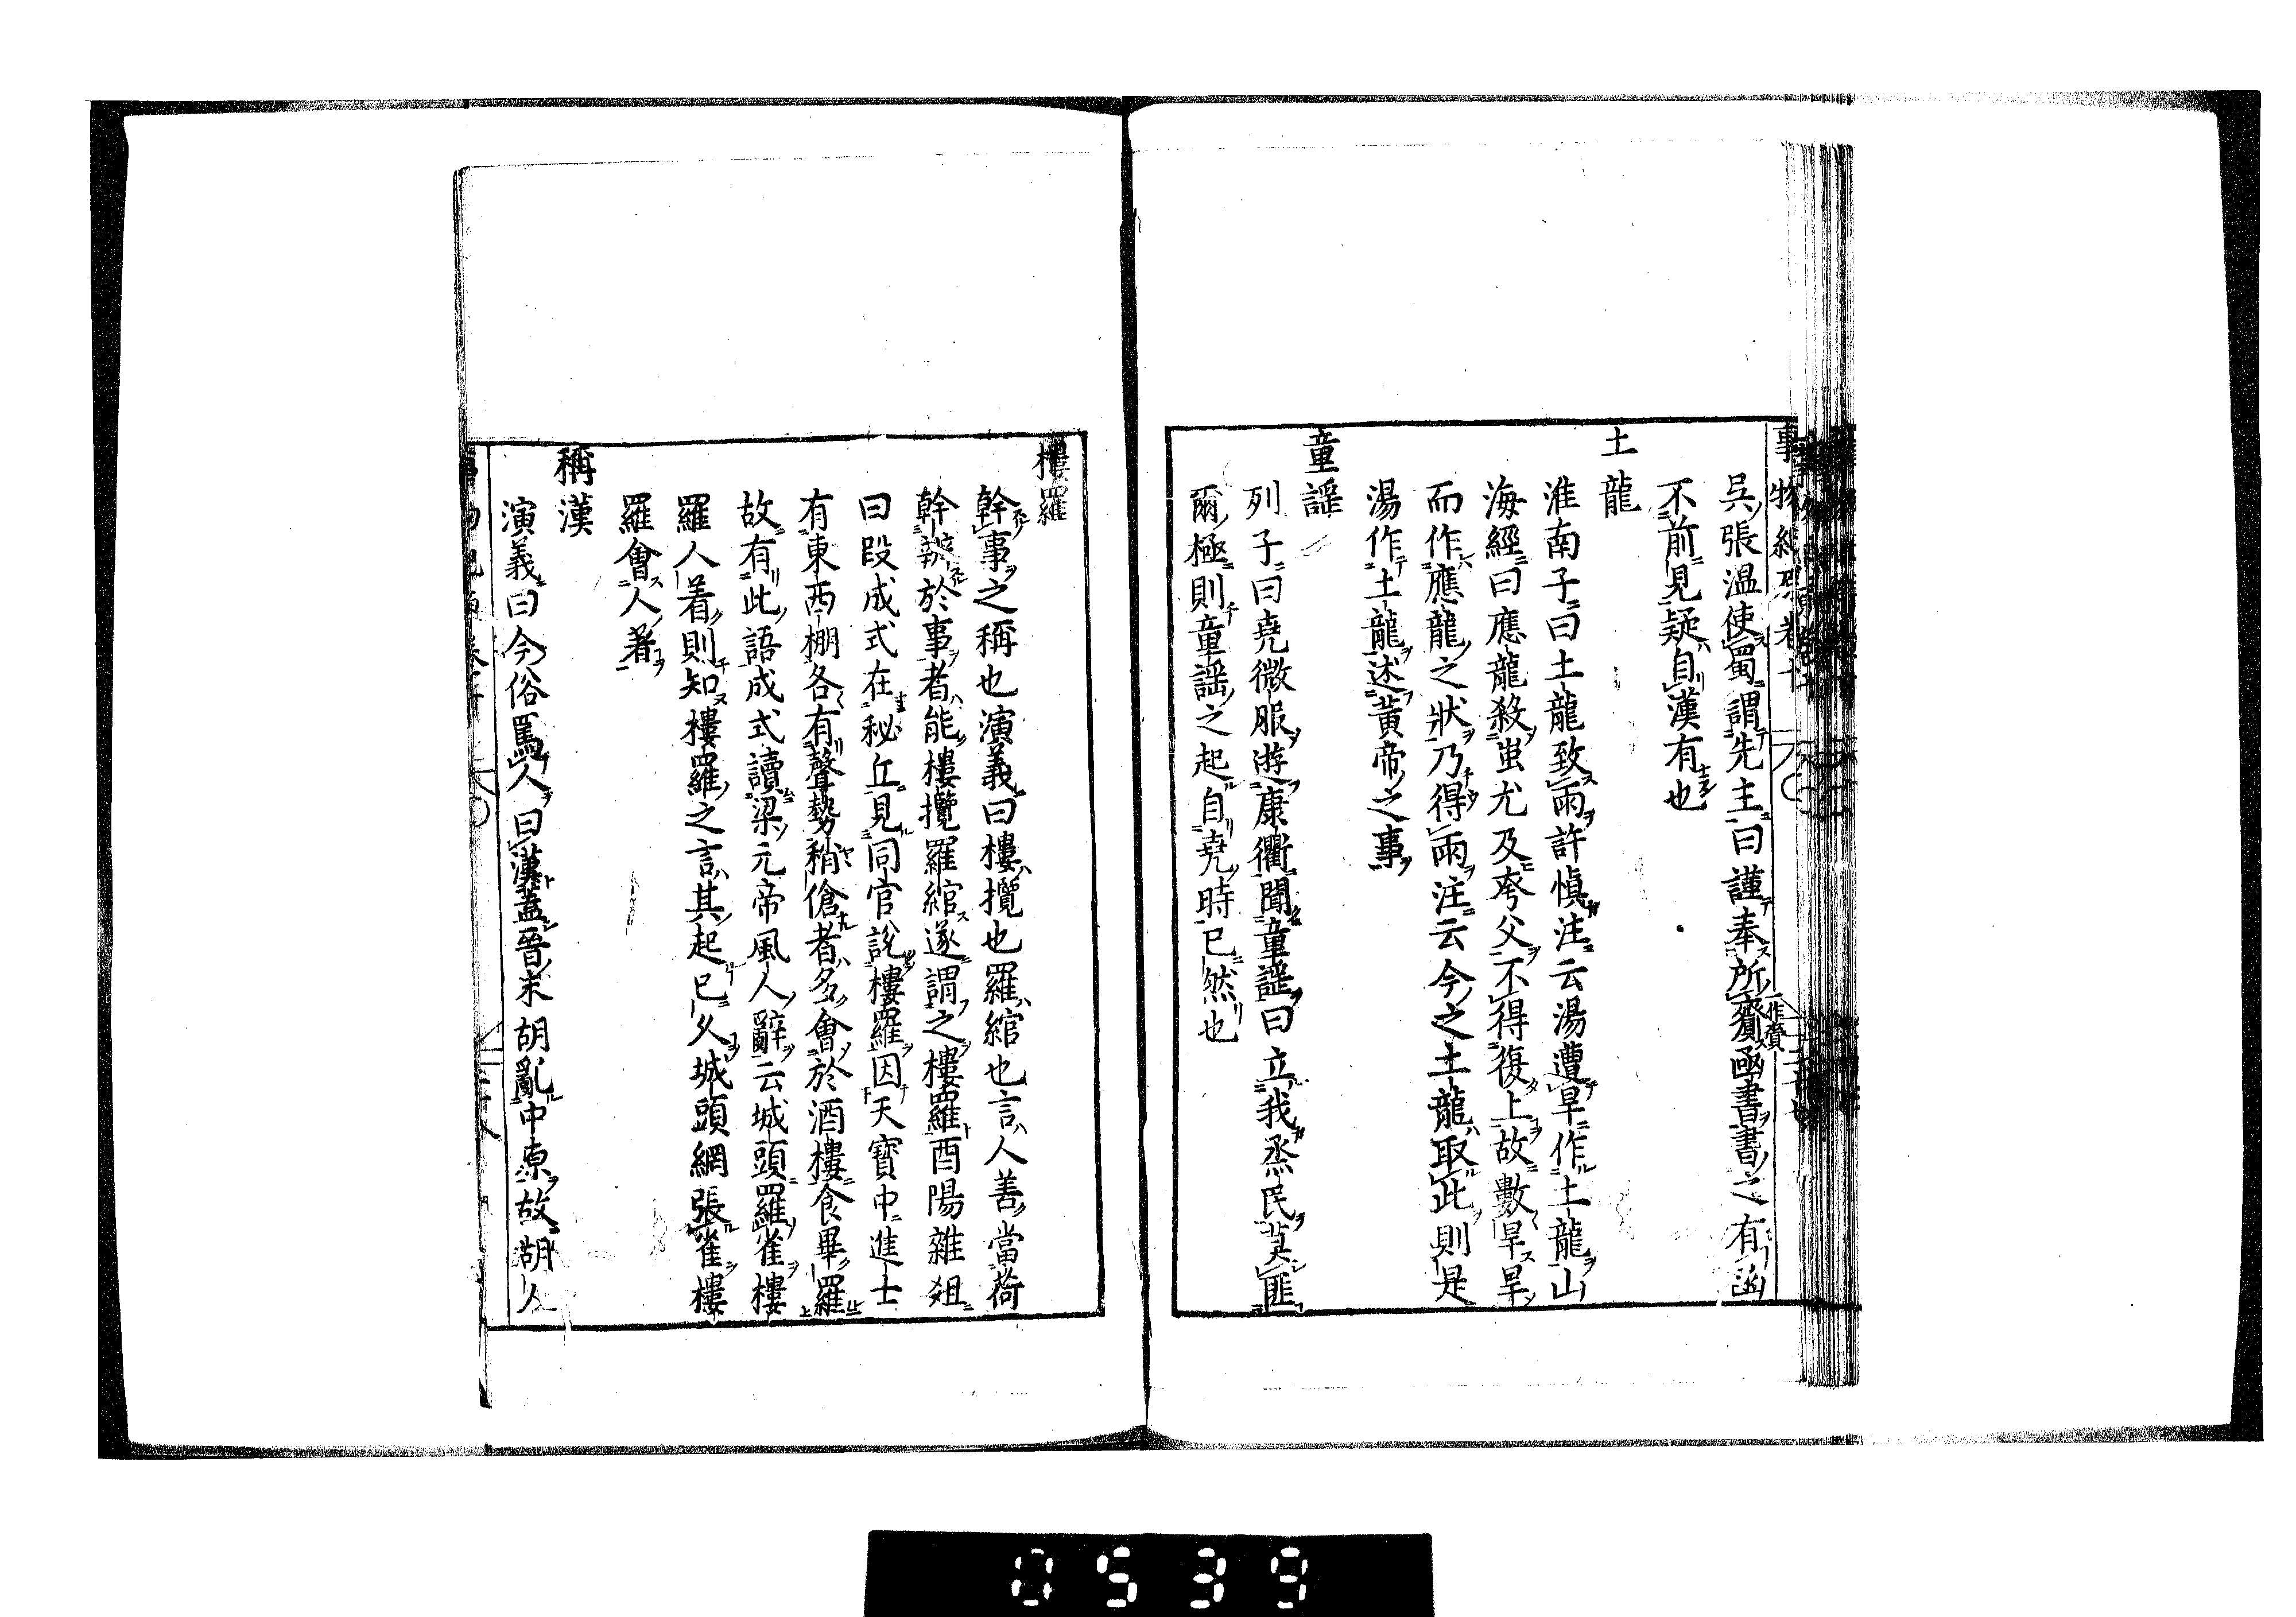 吳張温使蜀謂先主曰謹奉所齎凾書書之有凾
一作賫
不前見疑自漢有也
土龍
淮南子曰土龍致雨許愼注云湯遭旱作土龍山
海經曰應龍殺蚩尤及夸父不得復上故數旱旱
而作應龍之狀乃得雨注云今之土龍取此則是
湯作土龍述黃帝之事
童謡
列子曰堯微服遊康衢聞童謡曰立我烝民莫匪
爾極則童謡之起自堯時已然也
樓羅
幹事之稱也演義曰樓攬也羅綰也言人善當荷
幹辨於事者能樓攬羅綰遂謂之樓羅酉陽雜俎
曰段成式在秘丘見同官說樓羅因天寶中進士
有東西棚各有聲勢稍傖者多會於酒樓食畢羅
故有此語成式讀梁元帝風人辭云城頭羅雀樓
羅人着則知樓羅之言其起已久城頭網張雀樓
羅會人著
稱漢
演義曰今俗罵人曰漢蓋晉末胡亂中原故胡人
0539